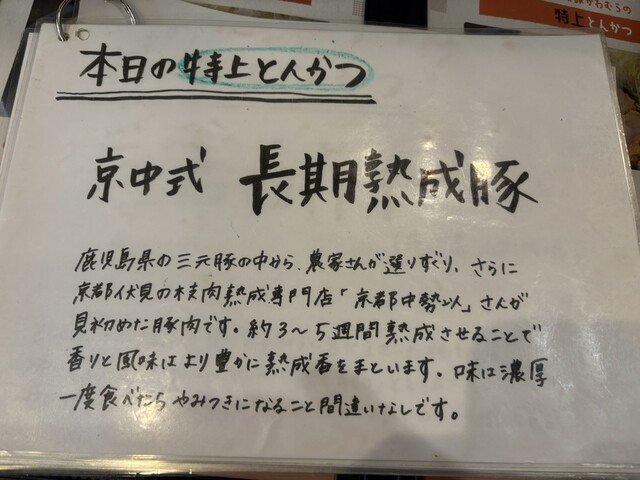 特上とんかつ
本日の特上とんかつ
京中式 長期熟成豚
鹿児島県の三元豚の中から、農家さんが選りすぐり、さらに
京都伏見の枝肉熟成専門店「京都中勢以」さんが
見初めた豚肉です。約3～5週間熟成させることで
香りと風味はより豊かに熟成香をまといます。味は濃厚
一度食べたらやみつきになること間違いなしです。